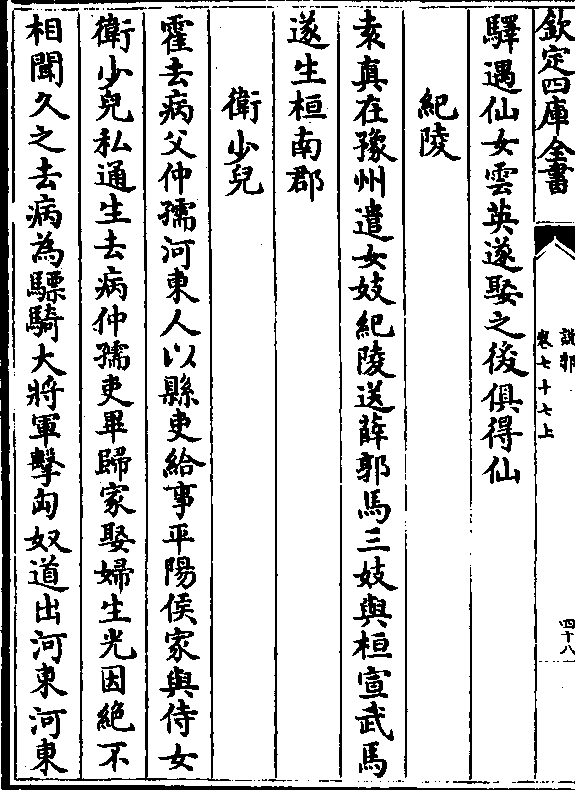 欽定四庫全書
說郛
卷七十七上
四十八
驛遇仙女雲英遂娶之後俱得仙
紀陵
袁真在豫州遣女妓紀陵送薛郭馬三妓與桓宣武馬
遂生桓南郡
衛少兒
霍去病父仲孺河東人以縣吏給事平陽侯家與侍女
衛少兒私通生去病仲孺吏畢歸家娶婦生光因絶不
相聞久之去病為驃騎大將軍擊匈奴道出河東河東